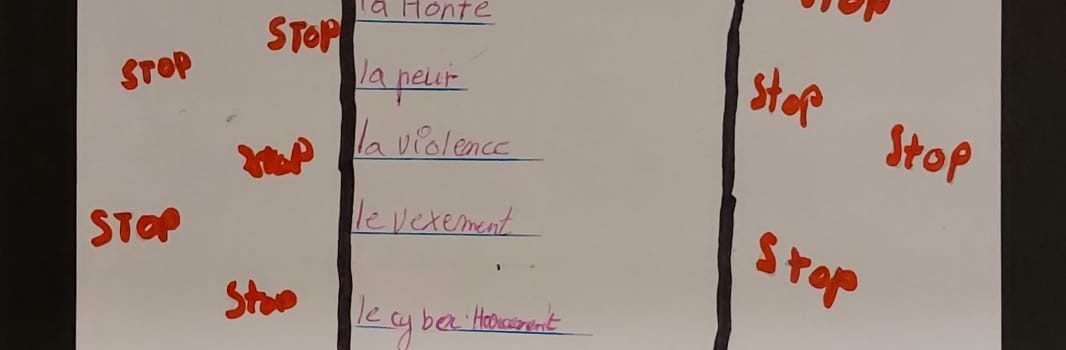 la Honte
STOP
STOP
STOP
la peur
Stop
la violence
Stop
Stop
le vexement
STOP
Stop
Stop
le cyber